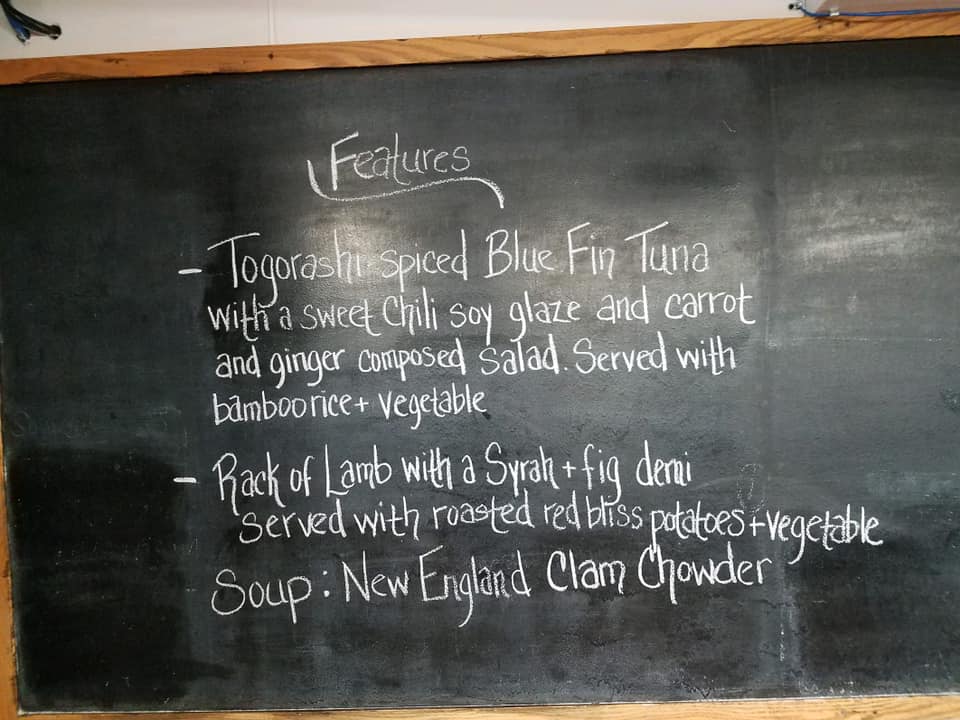 Features
- Togorashi spiced Blue Fin Tuna
with a sweet Chili soy glaze and carrot
and ginger composed Salad. Served with
bamboo rice + vegetable
- Rack of Lamb with a Syrah + fig demi
served with roasted red bliss potatoes + vegetable
Soup: New England Clam Chowder